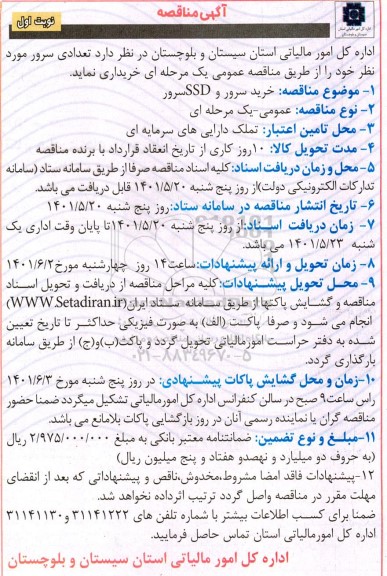 آگهی مناقصه
نوبت اول
اداره کل امور مالیاتی استان سیستان و بلوچستان در نظر دارد تعدادی سرور مورد
نظر خود را از طریق مناقصه عمومی یک مرحله ای خریداری نماید.
۱- موضوع مناقصه: خرید سرور و SSDسرور
۲- نوع مناقصه: عمومی-یک مرحله ای
۳- محل تامین اعتبار: تملک دارایی های سرمایه ای
۴- مدت تحویل کالا: ۱۰روز کاری از تاریخ انعقاد قرارداد با برنده مناقصه
۵-محل و زمان دریافت اسناد: کلیه اسناد مناقصه صرفا از طریق سامانه ستاد (سامانه
تدارکات الکترونیکی دولت)از روز پنج شنبه ۱۴۰۱/۵/۲۰ قابل دریافت می باشد.
۶- تاریخ انتشار مناقصه در سامانه ستاد:روز پنج شنبه ۱۴۰۱/۵/۲۰
۷- زمان دریافت اسناد:از روز پنج شنبه ۱۴۰۱/۵/۲۰تا پایان وقت اداری یک
شنبه ۱۴۰۱/۵/۲۳ می باشد.
۸- زمان تحویل و ارائه پیشنهادات:ساعت۱۴ روز چهارشنبه مورخ۱۴۰۱/۶/۲
۹- محل تحویل پیشنهادات:کلیه مراحل مناقصه از دریافت و تحویل اسناد
مناقصه و گشایش پاکتها از طریق سامانه ستاد ایران(WWW.Setadiran.ir)
انجام می شود و صرفا پاکت (الف) به صورت فیزیکی حداکثر تا تاریخ تعیین
شده به دفتر حراست امورمالیاتی تحویل گردد و پاکت(ب)و(ج) از طریق سامانه
بارگذاری گردد.
۰۲۱-۸۸۳۴۹۶۷۰-۵
۱۰-زمان و محل گشایش پاکات پیشنهادی: در روز پنج شنبه مورخ ۱۴۰۱/۶/۳
راس ساعت۹ صبح در سالن کنفرانس اداره کل امورمالیاتی تشکیل میگردد ضمنا حضور
مناقصه گران یا نماینده رسمی آنان در روز بازگشایی پاکات بلامانع می باشد.
۱۱-مبلغ و نوع تضمین: ضمانتنامه معتبر بانکی به مبلغ ۲/۹۷۵/۰۰۰/۰۰۰ ریال
(به حروف دو میلیارد و نهصدو هفتاد و پنج میلیون ریال)
۱۲-پیشنهادات فاقد امضا مشروط،مخدوش،ناقص و پیشنهاداتی که بعد از انقضای
مهلت مقرر در مناقصه واصل گردد ترتیب اثرداده نخواهد شد.
ضمنا برای کسب اطلاعات بیشتر با شماره تلفن های ۳۱۱۴۱۲۲۲ و۳۱۱۴۱۱۳۰
اداره کل امورمالیاتی استان تماس حاصل فرمایید.
اداره کل امور مالیاتی استان سیستان و بلوچستان